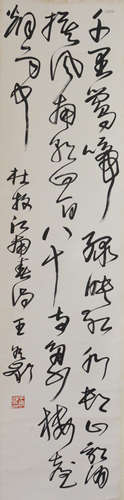 千里莺啼绿映红水村山郭酒
旗风南朝四百八十寺多少楼台
烟雨中
杜牧江南春诗 王